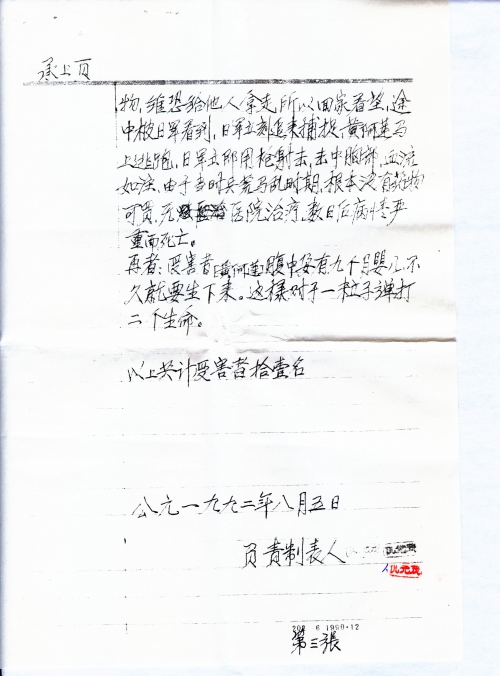 承上页
物，谁恐给他人拿走，所以回家看望，途
中被日军看到，日军立刻追来捕捉，黄阿莲马
上逃跑，日军立即用枪射击，击中腹部，血流
如注，由于当时兵荒马乱时期，根本没有药物
可买，无医院治疗，数日后病情严
重而死亡。
再者：受害者（黄阿莲）腹中安有九个月婴儿，不
久就要生下来。这样对于一粒子弹打
二个生命。
以上共计受害者拾壹名
公元一九九二年八月五日
负责制表人
6 1990·12
第三張